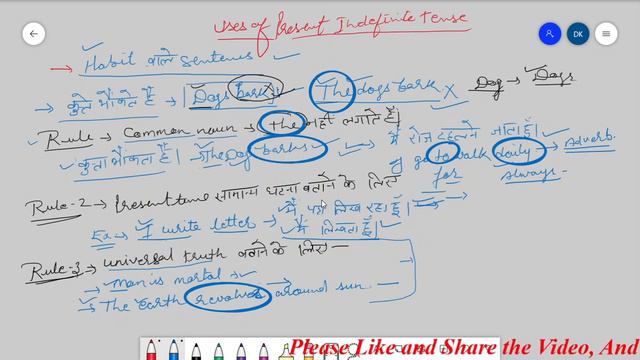 Uses of Present Indefinite Tense
DK
→ Habit वाले Sentences
→ कुत्ते भौंकते हैं → Dogs bark The dogs bark. X Dog → Dogs
Rule → Common noun → the नहीं लगाते हैं।
मैं रोज टहलने जाता हूँ।
कुत्ता भौंकता है। → The Dog barks
I go to walk daily → adverb.
for always
Rule-2 → Present time सामान्य घटना बताने के लिए
Ex → I write letter → मैं पत्र लिख रहा हूँ।
मैं लिखता हूँ।
Rule-3 → universal truth बताने के लिए
→ Man is mortal
→ The Earth revolves around sun.
Please Like and Share the Video, And